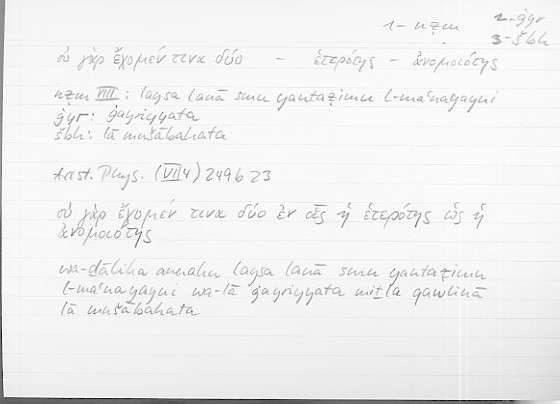 1 - nẓm 2 - ġyr
3 - šbh
οὐ γὰρ ἔχομέν τινα δύο – ἑτερότης – ἀνομοιότης
nẓm VIII : laysa lanā smu yantaẓimu l-maʿnayayni
ġyr : ġayriyyata
šbh : lā mušābahata
Arist. Phys. (VII 4) 249b23
οὐ γὰρ ἔχομέν τινα δύο ἐν οἷς ἡ ἑτερότης ὡς ἡ
ἀνομοιότης
wa-ḏālika annahu laysa lanā smu yantaẓimu
l-maʿnayayni wa-lā ġayriyyata miṯla qawlinā
lā mušābahata